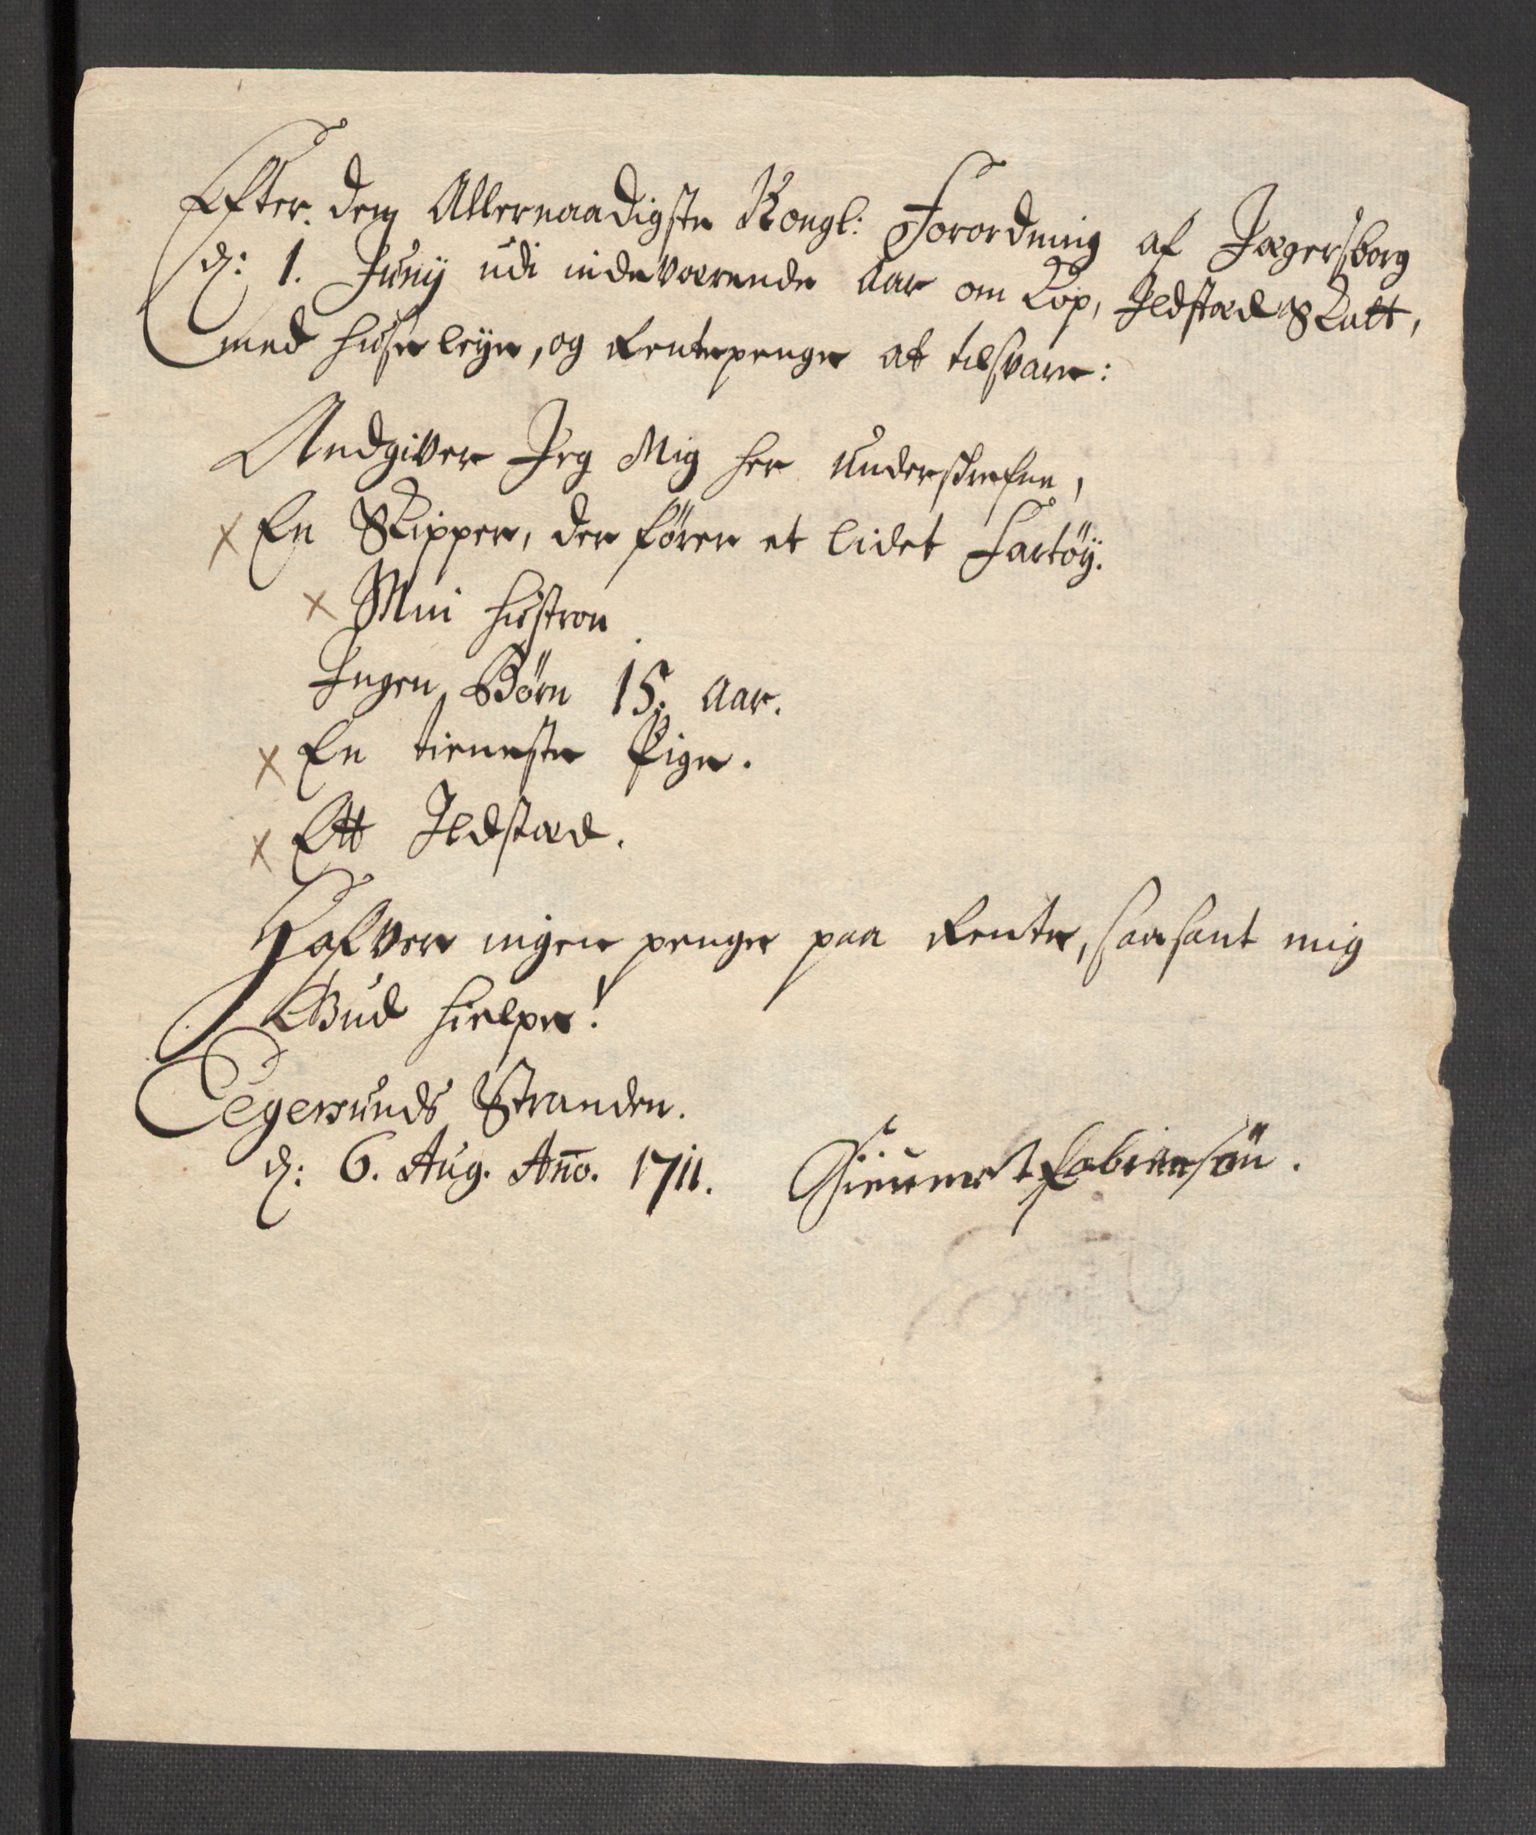 Efter dem Allernaadigste Kongl: Forordning af Jægersborg
d: 1. Juny udi indeværende Aar om Kop, Ildstæd Skatt,
med huse leye, og Rente penge at tilsvare:
Andgiver Jeg Mig her underskrefne,
x En Skipper, der fører et lidet Fartöy.
x Min hustroe
Ingen Børn 15. Aar.
x En tieneste Pige.
x Ett Ildstæd.
Hafver ingen penge paa Rente, saasant mig
Gud hielpe!
Eegersunds Stranden.
d: 6. Aug. Año. 1711. Fabiansön.